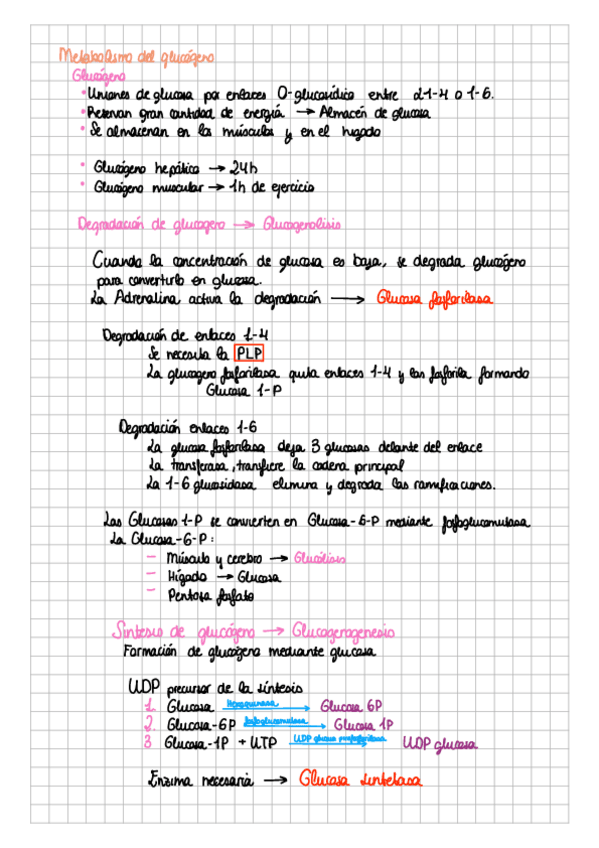 Metabolismo del glucógeno
Glucógeno
• Uniones de glucosa por enlaces O-glucosídico entre α1-4 o 1-6.
• Reservan gran cantidad de energía → Almacén de glucosa
• Se almacenan en los músculos y en el hígado
• Glucógeno hepático → 24h
• Glucógeno muscular → 1h de ejercicio
Degradación de glucogero → Glucogenolisis
Cuando la concentración de glucosa es baja, se degrada glucógeno
para convertirlo en glucosa.
La Adrenalina activa la degradación → Glucosa fosforilasa
Degradación de enlaces 1-4
Se necesita la PLP
La glucogero fosforilasa quita enlaces 1-4 y los fosforila formando
Glucosa 1-P
Degradación enlaces 1-6
La glucosa fosforilasa deja 3 glucosas delante del enlace
La transferasa, transfiere la cadena principal
La 1-6 glucosidasa elimina y degrada las ramificaciones.
Las Glucosas 1-P se convierten en Glucosa-6-P mediante fosfoglucomutasa
La Glucosa-6-P:
— Músculo y cerebro → Glucólisis
— Hígado → Glucosa
— Pentosa fosfato
Síntesis de glucógeno → Glucogerogenesis
Formación de glucógeno mediante glucosa
UDP precursor de la síntesis
1. Glucosa Hexoquinasa → Glucosa 6P
2. Glucosa-6P fosfoglucomutasa → Glucosa 1P
3 Glucosa-1P + UTP UDP glucosa pirofosforilasa → UDP glucosa
Enzima necesaria → Glucosa sintetasa